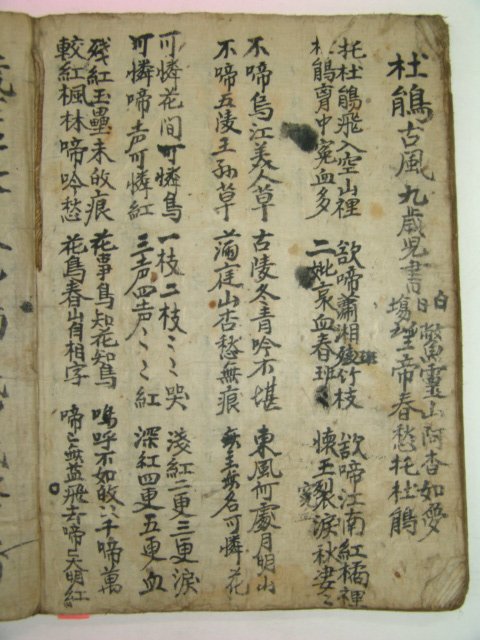 杜鵑古風九歲児書 白鱉靈山阿杏如夢
日塲望帝春愁托杜鵑
托杜鵑飛入空山裡 欲啼瀟湘班竹枝 欲啼江南紅橘裡
杜鵑胷中寃血多 二妣哀血春班〻 懐王裂淚秋凄〻
不啼烏江美人草 古陵冬青吟不堪 東風何處月明山
不啼五陵王孫草 滿庭山杏愁無痕 無主無名可憐花
可憐花間可憐鳥 一枝二枝〻〻哭 淺紅二更三更淚
可憐啼声可憐紅 三声四声〻〻紅 深紅四更五更血
残紅玉壘未的痕 花事鳥知花知鳥 嗚呼不如的八千啼萬
較紅楓林啼吟愁 花鳥春山自相字 啼〻無益飛去啼天明紅